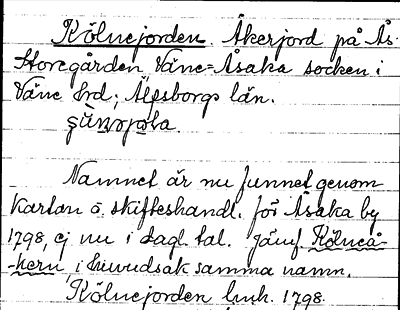 Kölnejorden. Åkerjord på Ås-
Storegården Väne-Åsaka socken i
Väne hrd; Älfsborgs län.
Namnet är nu funnet genom
kartan o. skifteshandl. för Åsaka by
1798, ej nu i dagl. tal. Jämf. Kölneå-
kern, i huvudsak samma namn.
Kölnejorden luh. 1798.